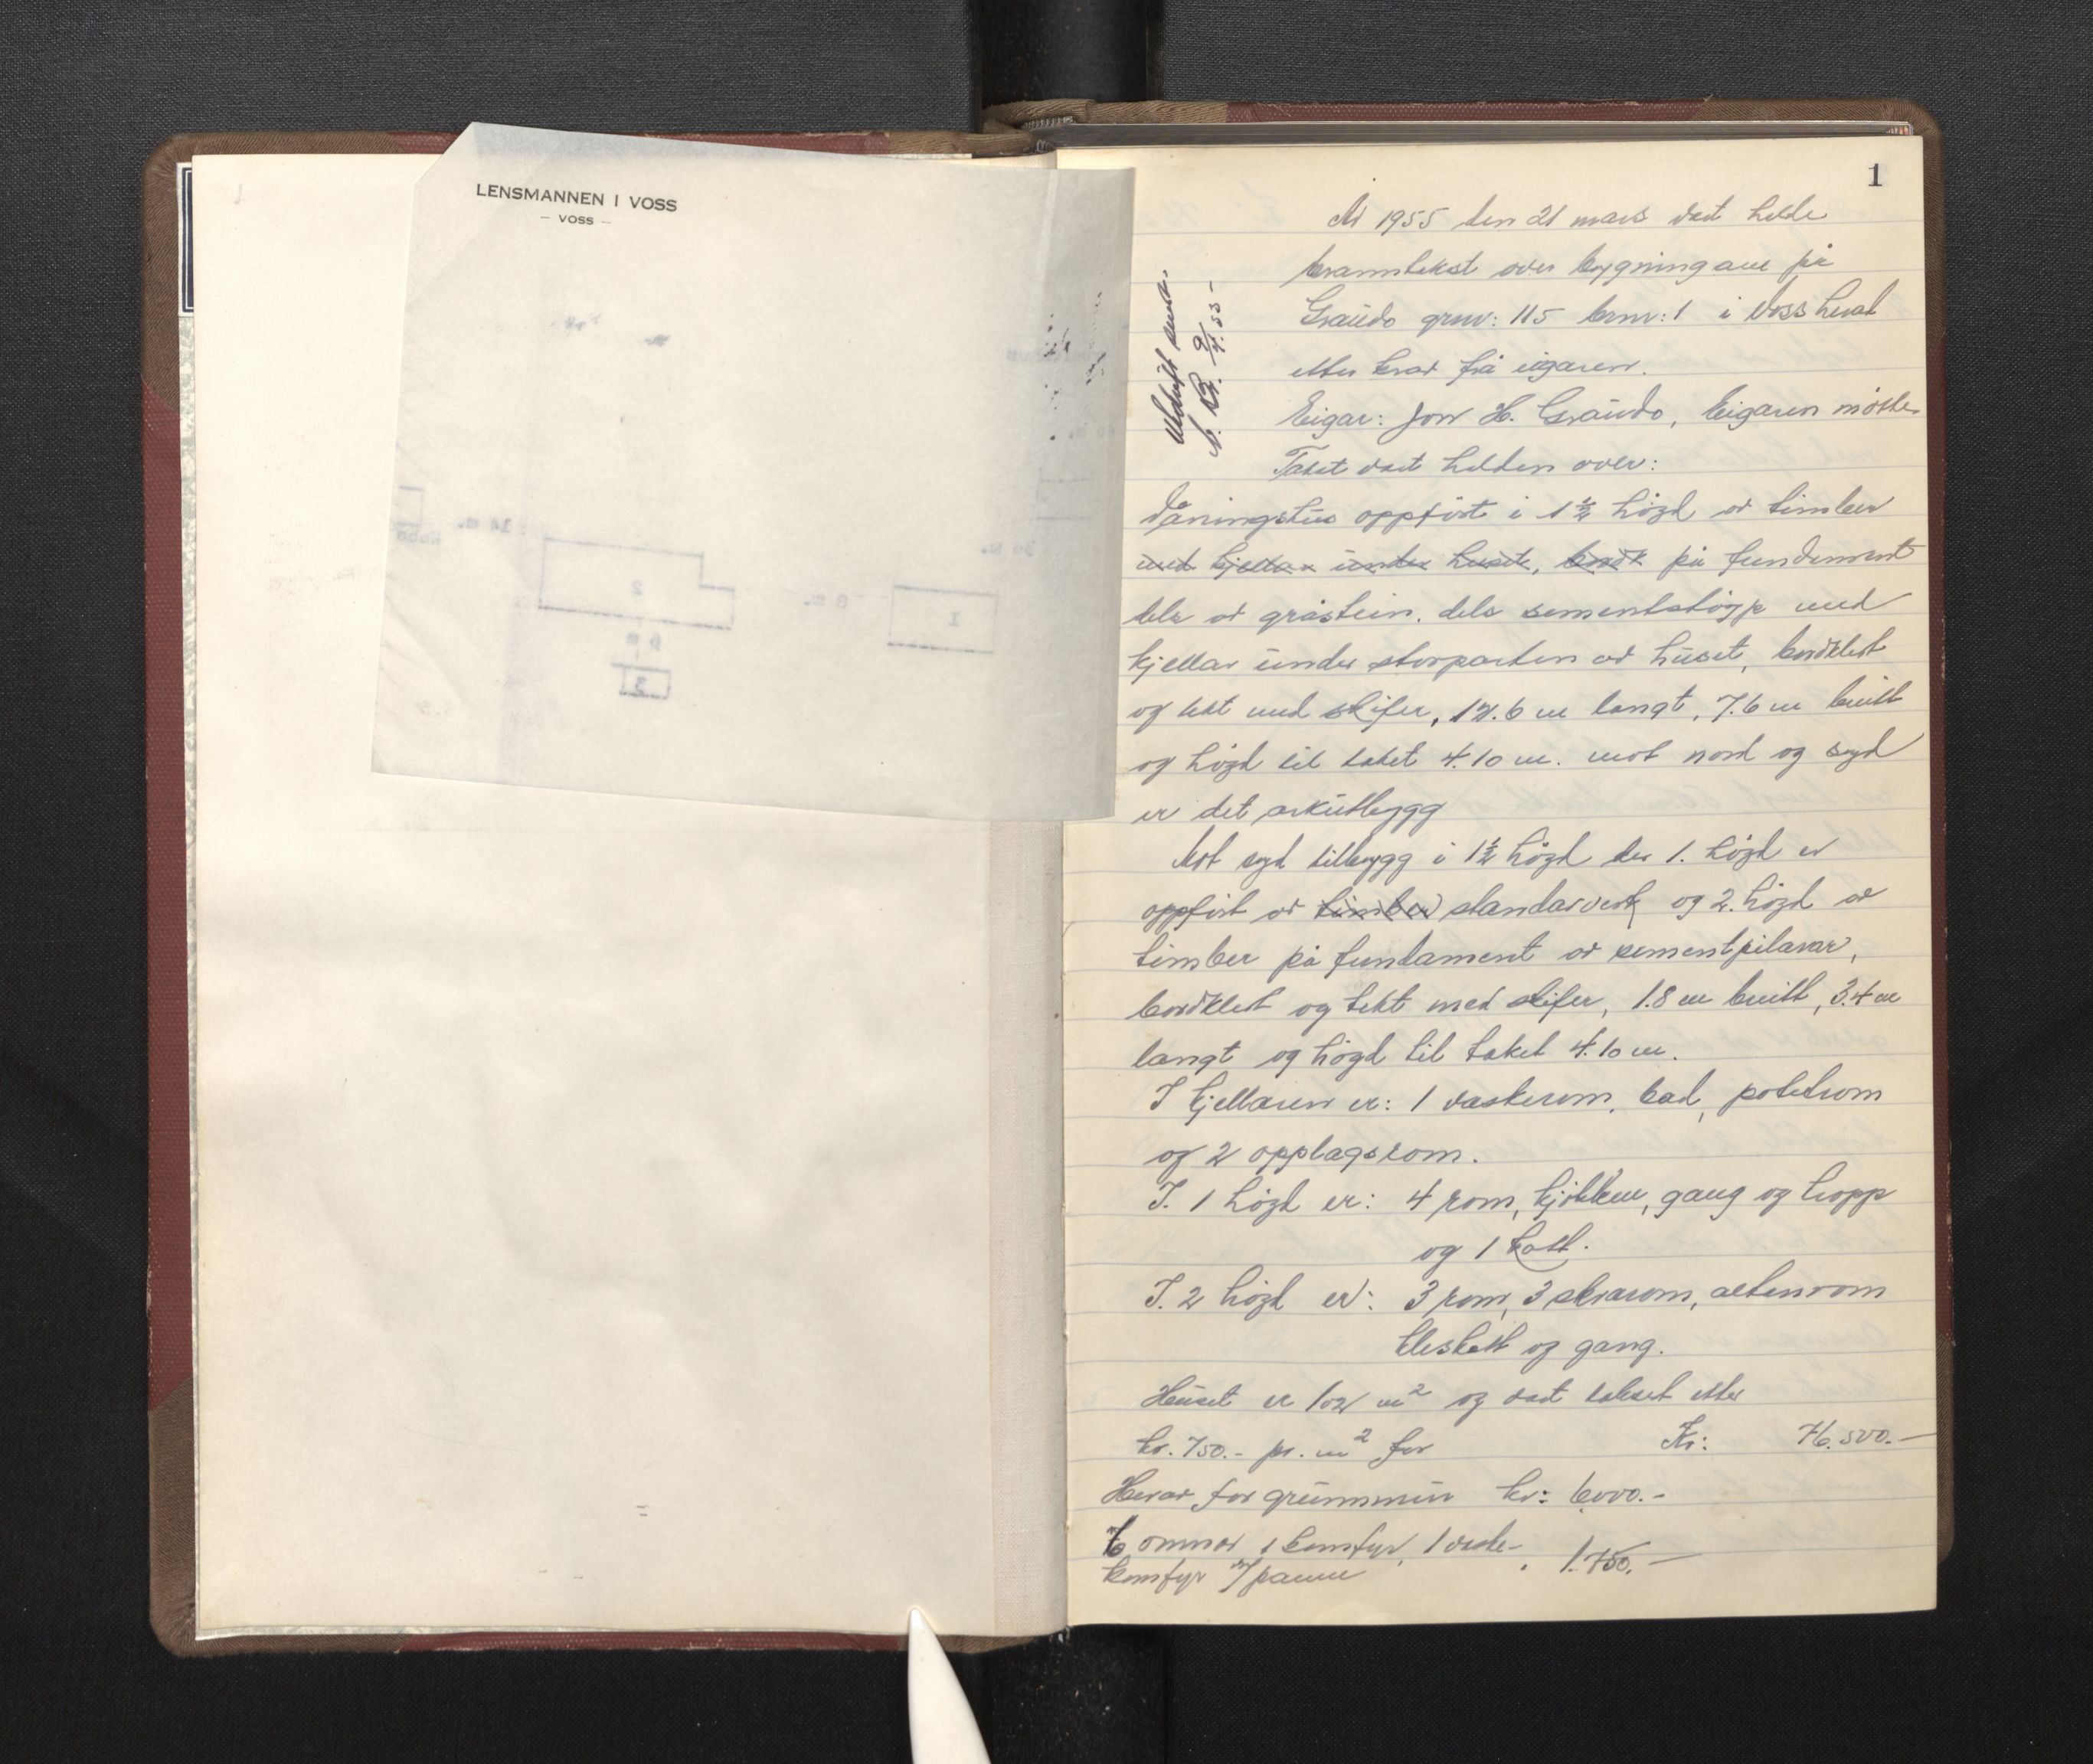 LENSMANNEN I VOSS
– VOSS –
1
År 1955 den 21 mars vart helde
branntakst over bygningane på
Gravdo gnr: 115 bnr: 1 i Voss herad
etter krav frå eigaren.
Eigar: Jon H. Gravdo, Eigaren møtte.
Takst vart halden over:
Utskrift sendt
N. B. 9/4.55 –
Våningshus oppført i 1½ høgd av timber
med kjellar under huset, bordk på fundament
dels av gråstein, dels sementstøyp med
kjellar under storparten av huset, bordkledt
og tekt med skifer, 12.6 m langt, 7.6 m breitt
og høgd til taket 4.10 m. mot nord og syd
er det arkutbygg
Mot syd tilbygg i 1½ høgd der 1. høgd er
oppført av timber standarverk og 2. høgd av
timber på fundament av sementpilarar,
bordkledt og tekt med skifer, 1.8 m breitt, 3.4 m
langt og høgd til taket 4.10 m.
I kjellaren er: 1 vaskerom, bad, potetrom
og 2 opplagsrom.
I. 1 høgd er: 4 rom, kjøkken, gang og tropp
og 1 kott.
I. 2 høgd er: 3 rom, 3 skrarom, altanrom
kleskott og gang.
Huset er 102 m² og vart taksert etter
kr. 750.- pr. m² for Kr: 76.500.-
Herav for grunnmur kr: 6000.-
6 omnar 1 komfyr, 1 vaske-
komfyr m/panne " 1.750.-
2
1
6 m
3
8 m.
14 m.
30 M.